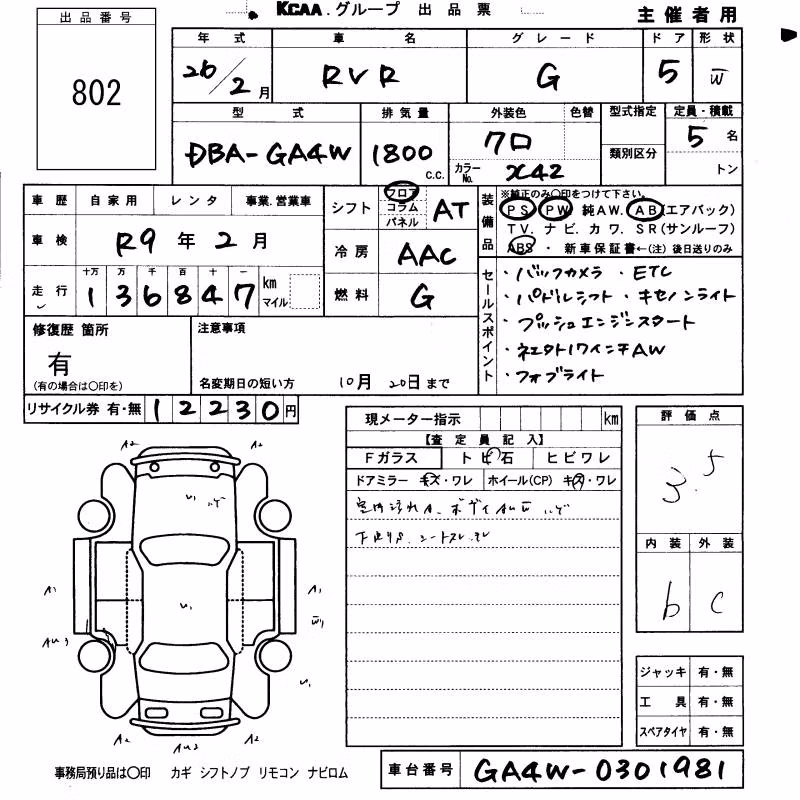 出品番号
802
KCAA.グループ 出品票
主催者用
年式 車名 グレード ドア 形状
26/2月 RVR G 5 W
型式 排気量 外装色 色替 型式指定 定員・積載
DBA-GA4W 1800 c.c. クロ 類別区分 5名
カラーNo. X42 トン
車歴 自家用 レンタ 事業.営業車
シフト フロア コラム パネル AT
車検 R9年2月
冷房 AAC
走行 十万 万 千 百 十 一
136847 km マイル
燃料 G
装備品 ※純正のみ〇印をつけて下さい。
PS PW 純AW. AB(エアバック)
TV. ナビ. カワ. SR(サンルーフ)
ABS ・ 新車保証書←(注)後日送りのみ
セールスポイント
・バックカメラ ・ETC
・パドルシフト ・キセノンライト
・プッシュエンジンスタート
・フォグライト
修復歴 箇所
有
(有の場合は〇印を)
注意事項
名変期日の短い方 10月 20日まで
リサイクル券 有・無 12230円
現メーター指示 km
【査定員記入】
Fガラス トビ石 ヒビワレ
ドアミラー キズ・ワレ ホイール(CP) キズ・ワレ
評価点
3.5
内装 外装
b c
A2 A2
U1
A1 U1 A1
AU3 W1
U1
A2 AU3 A2
ジャッキ 有・無
工具 有・無
スペアタイヤ 有・無
事務局預り品は〇印 カギ シフトノブ リモコン ナビロム
車台番号 GA4W-0301981